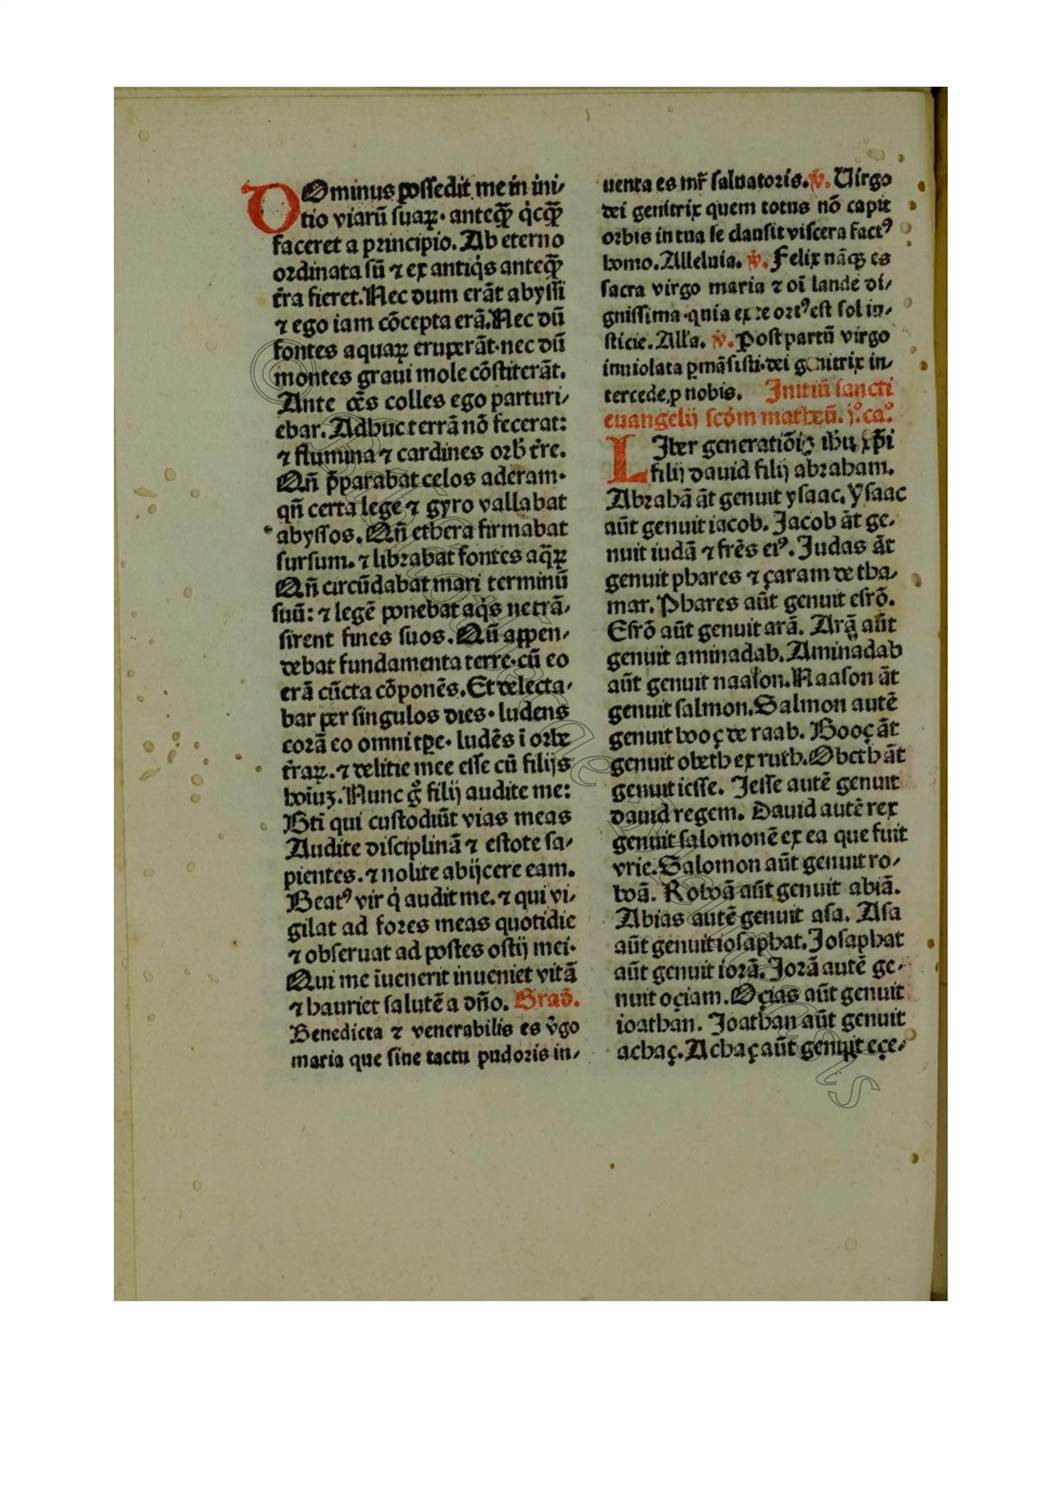 DOminus possedit me in ini/
tio viarū suaꝝ· anteꝙ̄ qͥcꝙ̄
faceret a principio. Ab eterno
ordinata sū ⁊ ex antiqͥs anteꝙ̄
t̄ra fieret. Nec dum erāt abyssi
⁊ ego iam cōcepta erā. Nec dū
fontes aquaꝝ eruperāt· nec dū
montes graui mole cōstiterāt.
Ante oēs colles ego parturi/
ebar. Adhuc terrā nō fecerat:
⁊ flumina ⁊ cardines orbꝰ t̄re.
Qn̄ p̄parabat celos aderam·
qn̄ certa lege ⁊ gyro vallabat
abyssos. Qn̄ ethera firmabat
sursum. ⁊ librabat fontes aqͣꝝ
Qn̄ circūdabat mari terminū
suū: ⁊ legē ponebat aqͥs ne trā/
sirent fines suos. Qn̄ appen/
debat fundamenta terre· cū eo
erā cūcta cōponēs. Et delecta/
bar per singulos dies· ludens
corā eo omni tꝑe· ludēs ī orbe
t̄raꝝ. ⁊ delitie mee esse cū filijs
hoīuꝫ. Nunc gͦ filij audite me:
Bt̄i qui custodiūt vias meas
Audite disciplinā ⁊ estote sa/
pientes. ⁊ nolite abijcere eam.
Beatꝰ vir qͥ audit me. ⁊ qui vi/
gilat ad fores meas quotidie
⁊ obseruat ad postes ostij mei·
Qui me īuenerit inueniet vitā
⁊ hauriet salutē a dn̄o. Grad̄.
Benedicta ⁊ venerabilis es v̄go
maria que sine tactu pudoris in/
uenta es mr̄ saluatoris. ℣. Uirgo
dei genitrix quem totus nō capit
orbis in tua se clausit viscera factꝰ
homo. Alleluia. ℣. Felix nāꝙ es
sacra virgo maria ⁊ oī laude di/
gnissima· quia ex te ortꝰ est sol iu/
sticie. Alľa. ℣. Post partū virgo
inuiolata ꝑmāsisti· dei genitrix in/
tercede ꝓ nobis. Initiū sancti
euangelij scḋm matheū. jͦ. caͦ.
LIber generatiōiꝫ ihu xp̄i
filij dauid filij abraham.
Abrahā āt genuit ysaac. Ysaac
aūt genuit iacob. Jacob āt ge/
nuit iudā ⁊ frēs eiꝰ. Judas āt
genuit phares ⁊ çaram de tha/
mar. Phares aūt genuit esrō.
Esrō aūt genuit arā. Arā aūt
genuit aminadab. Aminadab
aūt genuit naason. Naason āt
genuit salmon. Salmon autē
genuit booç de raab. Booç āt
genuit obeth ex ruth. Obeth āt
genuit iesse. Jesse autē genuit
dauid regem. Dauid autē rex
genuit salomonē ex ea que fuit
vrie. Salomon aūt genuit ro/
boā. Roboā aūt genuit abiā.
Abias autē genuit asa. Asa
aūt genuit iosaphat. Josaphat
aūt genuit iorā. Jorā autē ge/
nuit oçiam. Oçias aūt genuit
ioathan. Joathan aūt genuit
achaç. Achaç aūt genuit eçe/